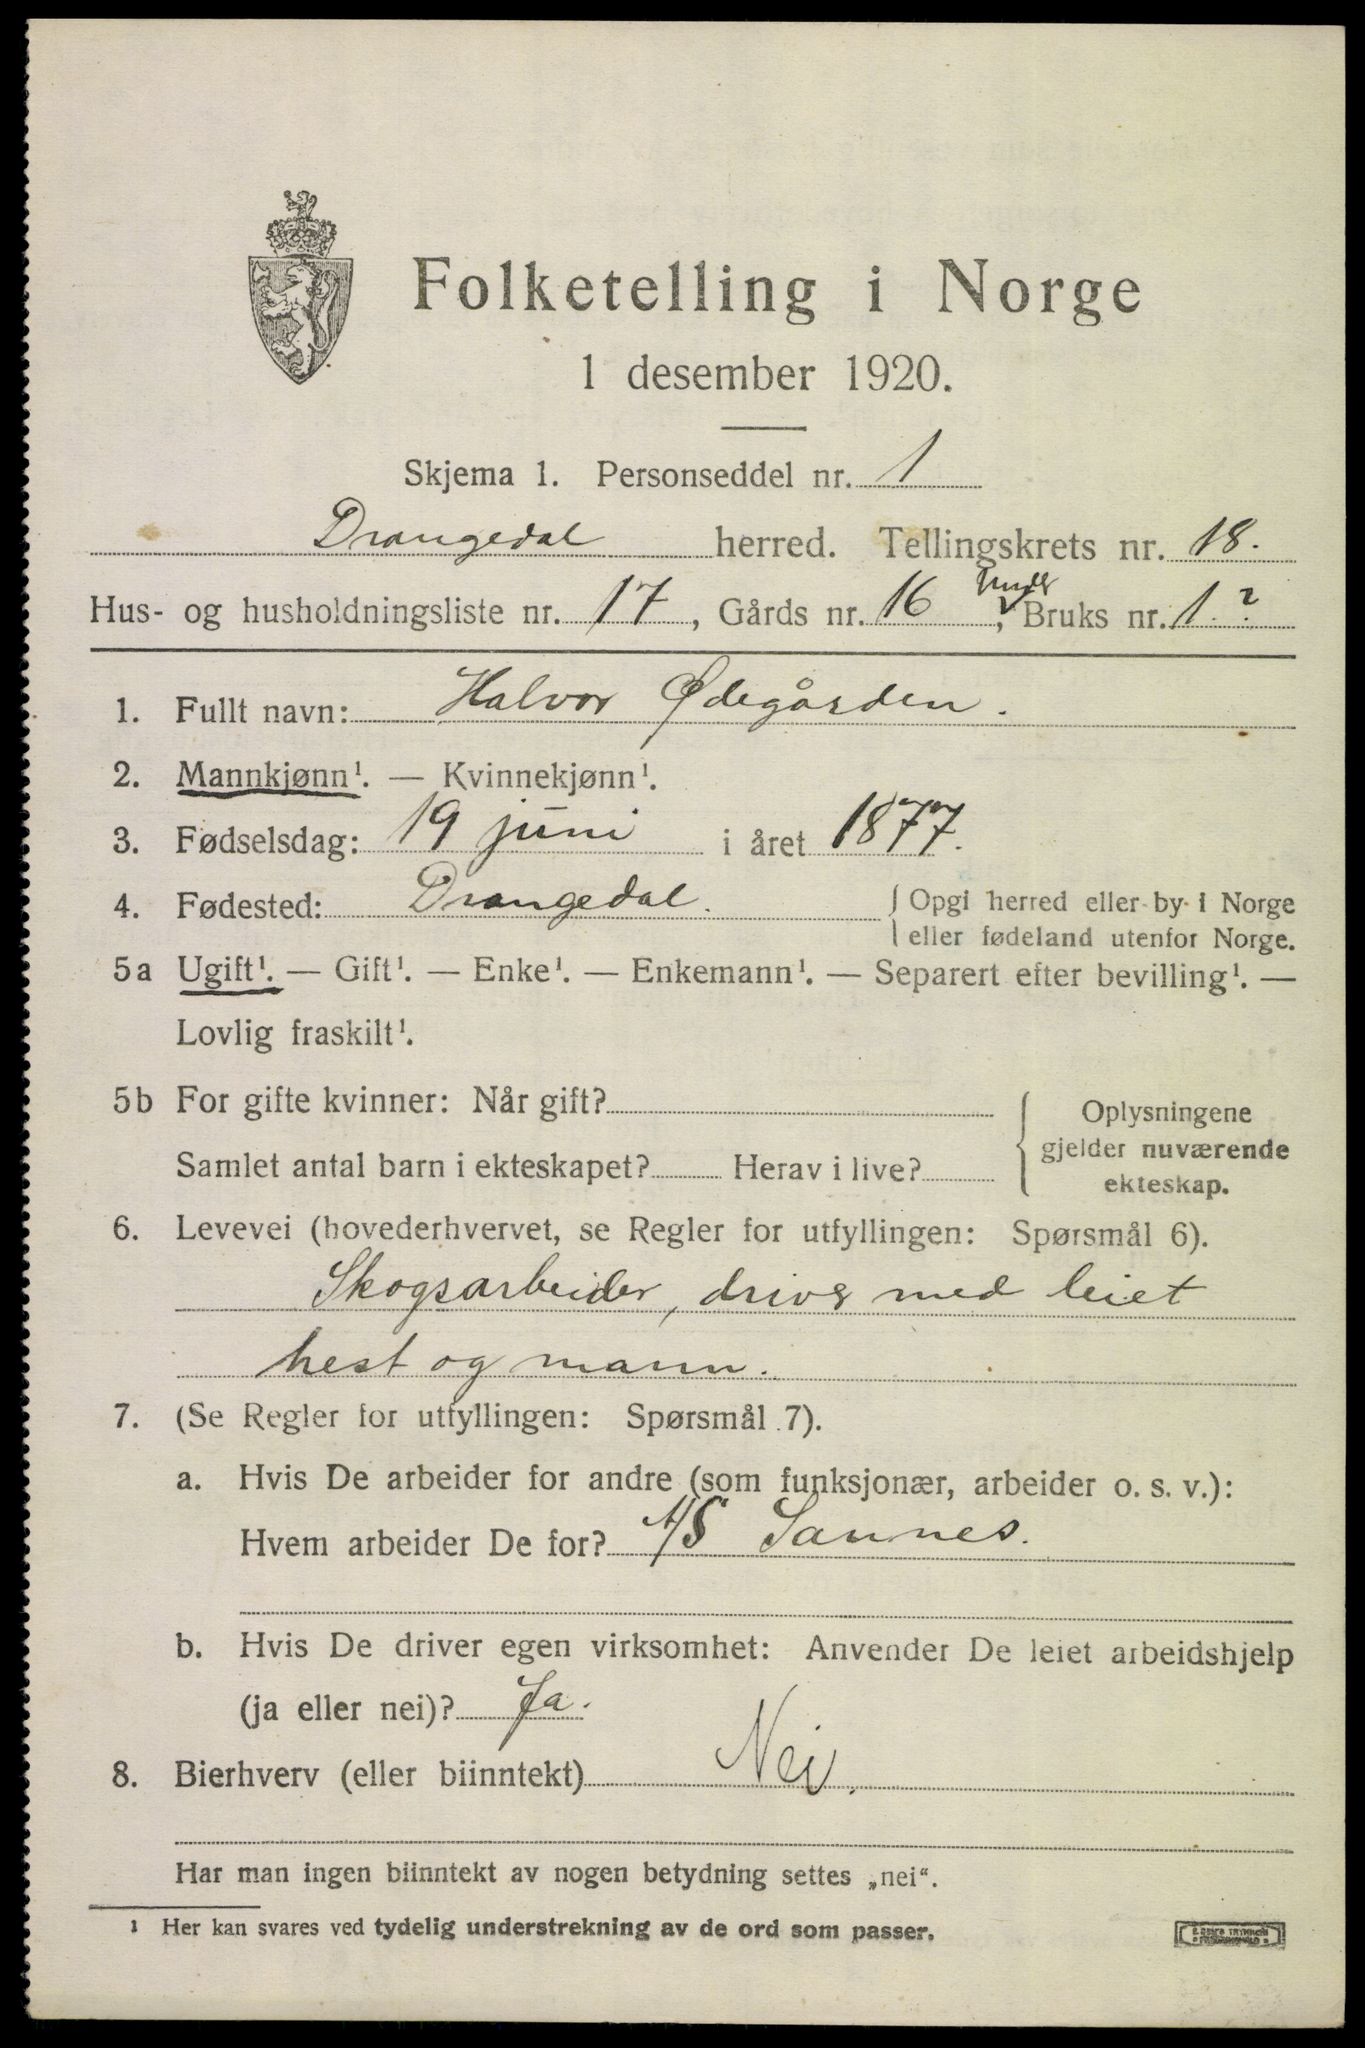 Folketelling i Norge
1 desember 1920.
Skjema 1. Personseddel nr. 1
Drangedal herred. Tellingskrets nr. 18.
Hus- og husholdningsliste nr. 17, Gårds nr. 16 under, Bruks nr. 1.?
1. Fullt navn: Halvor Ødegården.
2. Mannkjønn¹. — Kvinnekjønn¹.
3. Fødselsdag: 19 juni i året 1877.
4. Fødested: Drangedal. Opgi herred eller by i Norge
eller fødeland utenfor Norge.
5a Ugift¹. — Gift¹. — Enke¹. — Enkemann¹. — Separert efter bevilling¹. —
Lovlig fraskilt¹.
5b For gifte kvinner: Når gift?
Samlet antal barn i ekteskapet? Herav i live?
Oplysningene
gjelder nuværende
ekteskap.
6. Levevei (hovederhvervet, se Regler for utfyllingen: Spørsmål 6).
Skogsarbeider, drive med leiet
hest og mann.
7. (Se Regler for utfyllingen: Spørsmål 7).
a. Hvis De arbeider for andre (som funksjonær, arbeider o. s. v.):
Hvem arbeider De for? A/S Sannes.
b. Hvis De driver egen virksomhet: Anvender De leiet arbeidshjelp
(ja eller nei)? Ja.
8. Bierhverv (eller biinntekt) Nei.
Har man ingen biinntekt av nogen betydning settes „nei“.
¹ Her kan svares ved tydelig understrekning av de ord som passer.